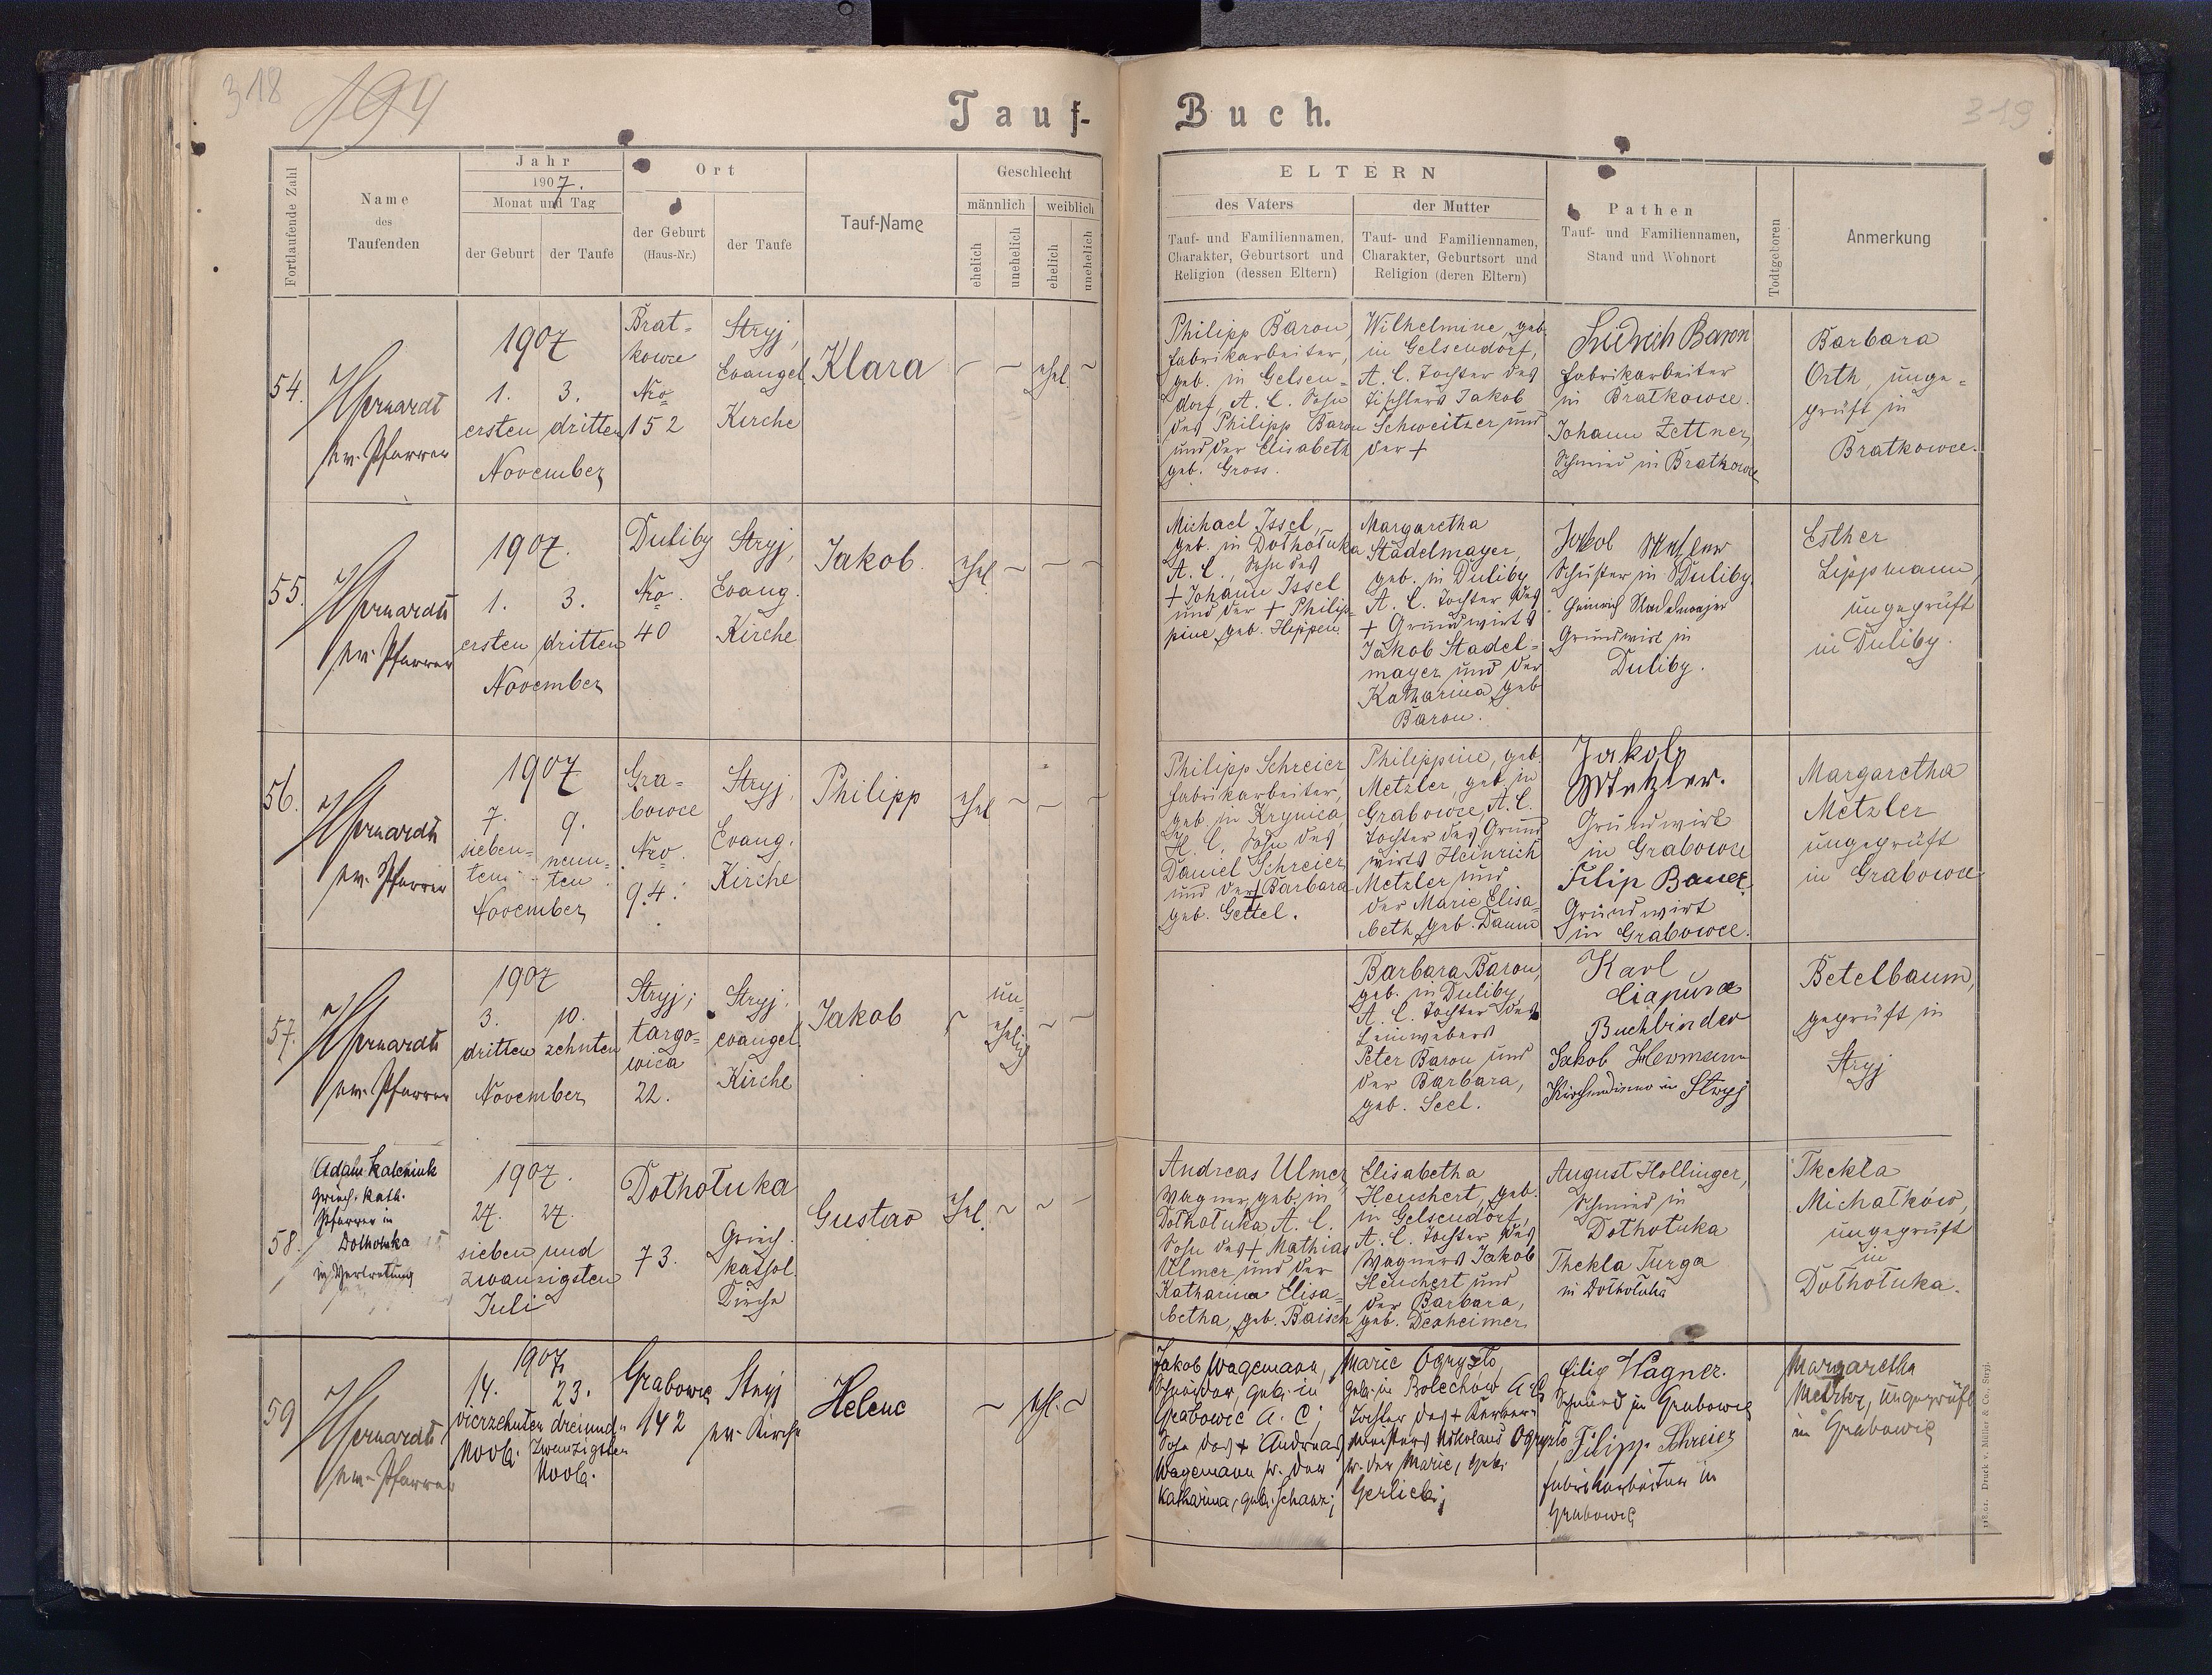 318
194
319
Tauf-Buch.
Fortlaufende Zahl
Name
des
Taufenden
Jahr
1907.
Monat und Tag
der Geburt
der Taufe
Ort
der Geburt
(Haus-Nr.)
der Taufe
Tauf-Name
Geschlecht
männlich
weiblich
ehelich
unehelich
ehelich
unehelich
ELTERN
des Vaters
Tauf- und Familiennamen,
Charakter, Geburtsort und
Religion (dessen Eltern)
der Mutter
Tauf- und Familiennamen,
Charakter, Geburtsort und
Religion (deren Eltern)
Pathen
Tauf- und Familiennamen,
Stand und Wohnort
Todtgeboren
Anmerkung
54.
ev. Pfarrer
1907
1. 3.
ersten dritten
November
Brat-
kowce
Nro
152
Stryj,
Evangel.
Kirche
Klara
– – ehel. –
Philipp Baron,
Fabrikarbeiter,
geb. in Gelsen-
dorf, A. C. Sohn
des Philipp Baron
und der Elisabeth
geb. Gross.
Wilhelmine, geb.
in Gelsendorf,
A. C. Tochter des
Tischlers Jakob
Schweitzer und
der +
Fridrich Baron
Fabrikarbeiter
in Bratkowce.
Johann Zettner,
Schmied in Bratkowce
Barbara
Orth, unge-
prüft in
Bratkowce.
55.
ev. Pfarrer
1907.
1. 3.
ersten dritten
November
Duliby
Nro.
40
Stryj,
Evang.
Kirche
Jakob.
ehel. – – –
Michael Issel,
geb. in Dołhołuka
A. C., Sohn des
+ Johann Issel
und der + Philip-
pine geb. Heppen.
Margaretha
Stadelmayer,
geb. in Duliby
A. C. Tochter des
+ Grundwirts
Jakob Stadel-
mayer und der
Katharina, geb.
Baron.
Jakob
Schuster in Duliby.
Heinrich Stadelmayer
Grundwirt in
Duliby.
Esther
Lippmann,
ungeprüft
in Duliby.
56.
ev. Pfarrer
1907
7. 9.
sieben- neun-
ten ten
November
Gra-
bowce
Nro.
94.
Stryj,
Evang.
Kirche
Philipp
ehel. – – –
Philipp Schreier,
Fabrikarbeiter,
geb. in Krynica,
H. C. Sohn des
Daniel Schreier
und der + Barbara
geb. Gettel.
Philippine, geb.
Metzler, geb. in
Grabowce, A. C.
Tochter des Grund
wirts Heinrich
Metzler und
der Marie Elisa-
beth, geb. Daum
Jakob
Metzler.
Grundwirt
in Grabowce
Filip Bauer
Grundwirt
in Grabowce.
Margaretha
Metzler
ungeprüft
in Grabowce
57.
ev. Pfarrer
1907
3. 10.
dritten zehnten
November
Stryj;
targo-
wica
22.
Stryj.
evangel.
Kirche
Jakob
– un-
ehelich – –
Barbara Baron,
geb. in Duliby,
A. C. Tochter des
Leinwebers
Peter Baron und
der Barbara,
geb. Seel.
Karl
Ciapura
Buchbinder
Jakob Hermann
Kirchendiener in Stryj
Betelbaum,
geprüft in
Stryj
58.
Adam Kaleniuk
Griech. Kath.
Pfarrer in
Dołhołuka
in Vertretung
1907.
27. 27.
sieben und
zwanzigsten
Juli
Dołhołuka
73.
Griech.
kathol.
Kirche
Gustav
ehel. – – –
Andreas Ulmer
Wagner, geb. in
Dołhołuka, A. C.
Sohn des + Mathias
Ulmer und der
Katharina Elisa-
betha, geb. Baisch
Elisabetha
Heuchert, geb.
in Gelsendorf,
A. C. Tochter des
Wagners Jakob
Heuchert und
der Barbara,
geb. Dexheimer.
August Hollinger,
Schmied in
Dołhołuka
Thekla Turga
in Dołhołuka
Thekla
Michałków,
ungeprüft
in
Dołhołuka.
59
ev. Pfarrer
1907
14. 23.
vierzehnten dreiund-
Novb. zwanzigsten
Novb.
Grabowce
142
Stryj
ev. Kirche
Helene
– ehl. –
Jakob Wagemann,
Schneider, geb. in
Grabowce A. C;
Sohn des + Andreas
Wagemann u. der
Katharina, geb. Schanz;
Marie Ogryzło,
geb. in Bolechow A C
Tochter des + Gerber-
meisters Nikolaus Ogryzło
u. der Marie, geb.
Gerlieb;
Filip Wagner.
Schmied in Grabowce
Filipp Schreier
Fabrikarbeiter in
Grabowce
Margaretha
Metzler, ungeprüft
in Grabowce
Druck v. Müller & Co., Stryj.